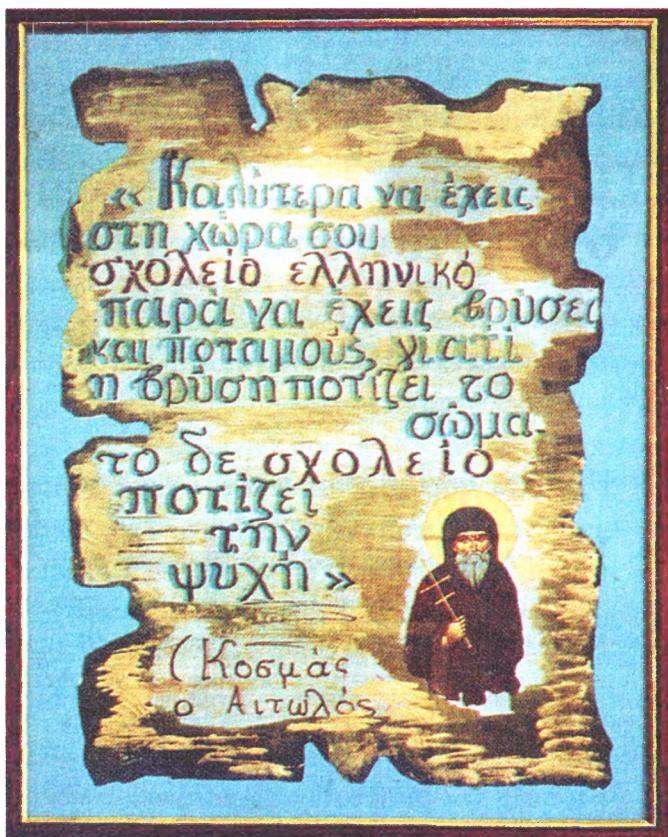 « Καλύτερα να έχεις
στη χώρα σου
σχολείο ελληνικό
παρά να έχεις βρύσες
και ποταμούς, γιατί
η βρύση ποτίζει το
σώμα.
το δε σχολείο
ποτίζει
την
ψυχή »
(Κοσμάς
ο Αιτωλός